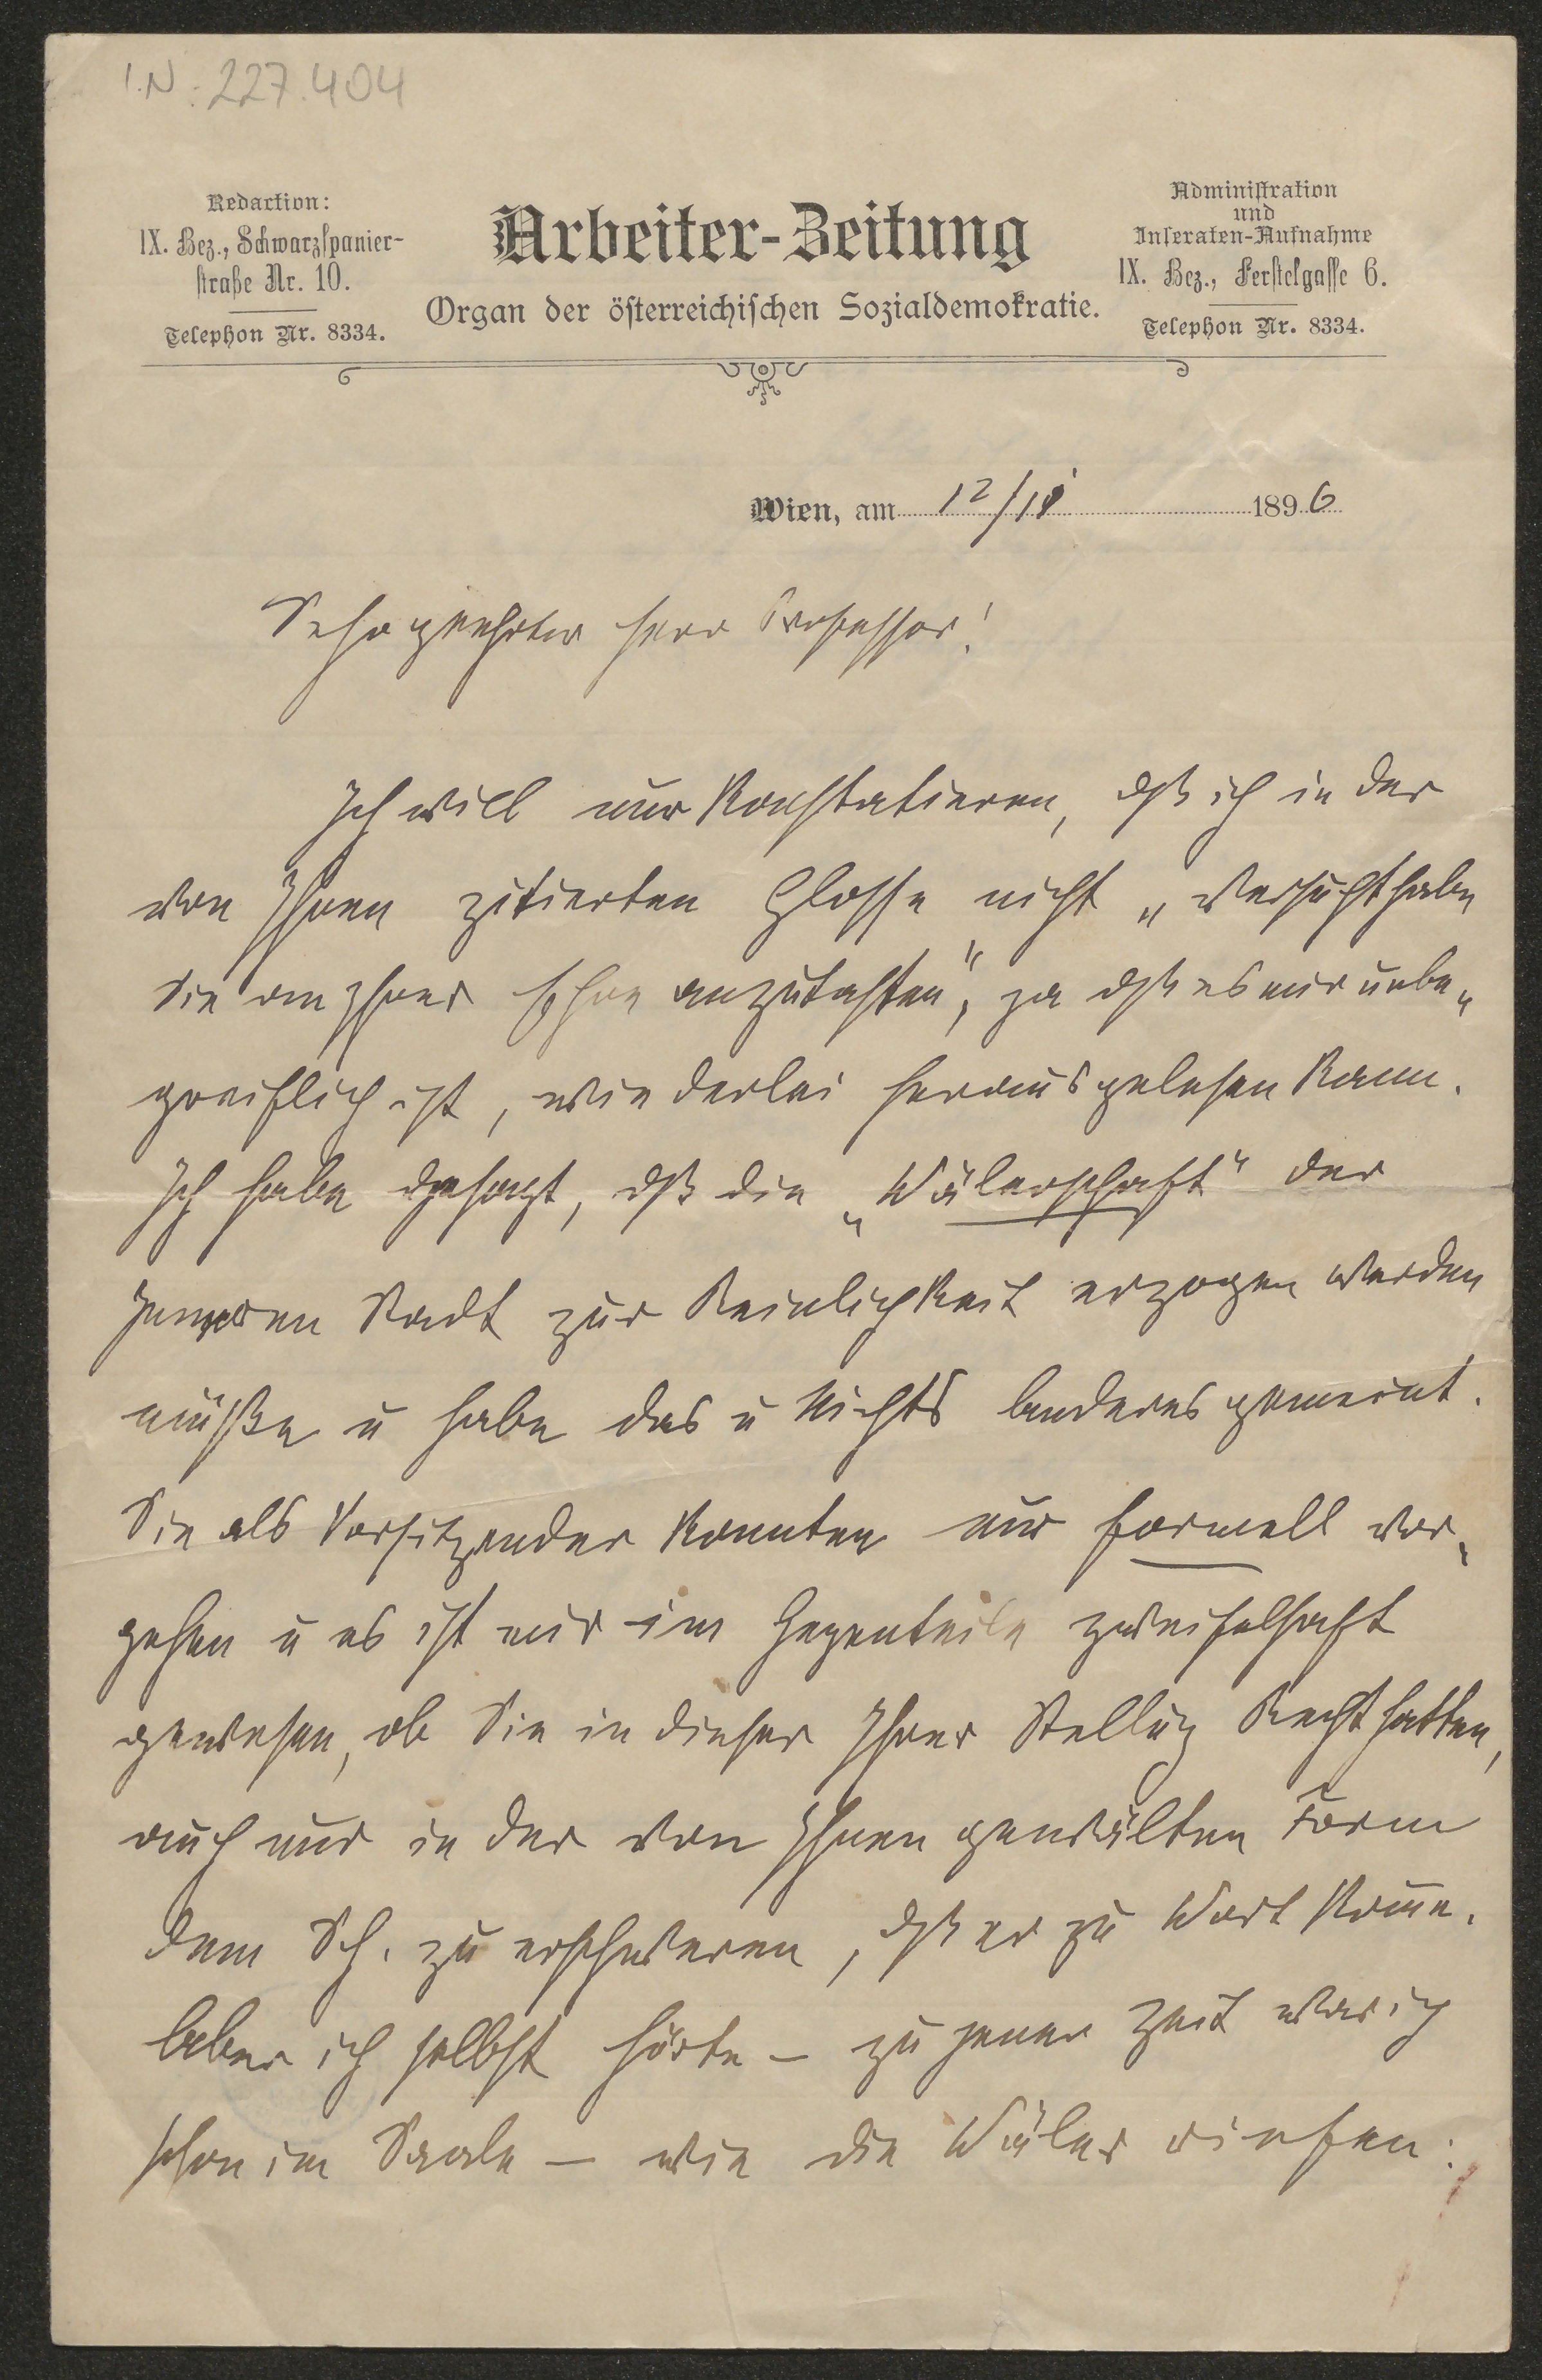 I.N: 227.404
Redaction:
IX. Bez., Schwarzspanier-
straße Nr. 10.
Telephon Nr. 8334.
Arbeiter-Zeitung
Organ der österreichischen Sozialdemokratie.
Administration
und
Inseraten-Aufnahme
IX. Bez., Ferstelgasse 6.
Telephon Nr. 8334.
Wien, am 12/11 1896
Sehr geehrter Herr Professor!
Ich will nur konstatieren, dß ich in der
von Ihnen zitierten Glosse nicht „versucht habe
Sie an Ihrer Ehre anzutasten“, ja dß es mir unbe-
greiflich ist, wie derlei herausgelesen kann.
Ich habe gesagt, dß die „Wälerschaft“ der
Inneren Stadt zur Reinlichkeit erzogen werden
müße u habe das u Nichts Anderes gemeint.
Sie als Vorsitzender konnten nur formell vor-
gehen u es ist mir im Gegenteile zweifelhaft
gewesen, ob Sie in dieser Ihrer Stellung Recht hatten,
auch nur in der von Ihnen gewälten Form
dem Sch. zu erschweren, dß er zu Wort kome.
Aber ich selbst hörte – zu jener Zeit war ich
schon im Saale – wie die Wäler riefen: